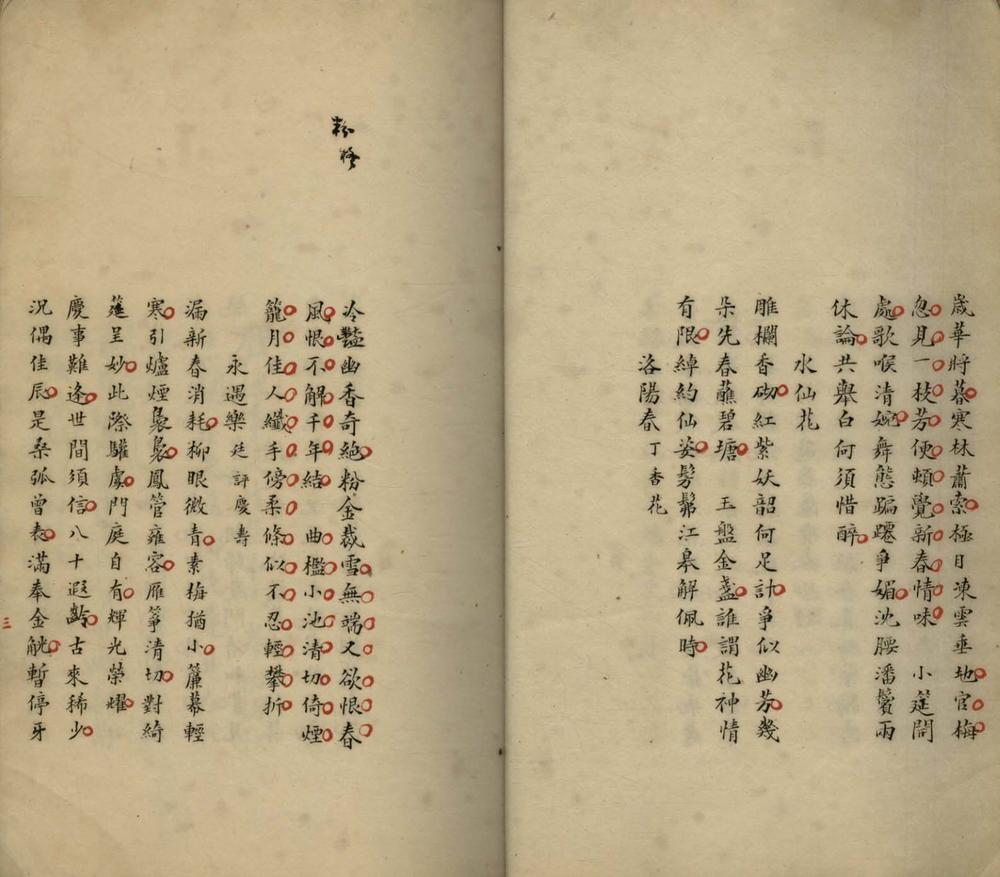 歲華將暮寒林蕭索極目凍雲垂地官梅
忽見一枝芳便頓覺新春情味　小筵開
處歌喉清婉舞態蹁躚爭媚沈腰潘鬢兩
休論共舉白何須惜醉
水仙花
雕欄香砌紅紫妖韶何足計爭似幽芳幾
朵先春蘸碧塘　玉盤金盞誰謂花神情
有限綽約仙姿髣髴江皋解佩時
洛陽春 丁香花
粉
冷豔幽香奇絕粉金裁雪無端又欲恨春
風恨不解千年結　曲檻小池清切倚煙
籠月佳人纖手傍柔條似不忍輕攀折
永遇樂 廷評慶壽
漏新春消耗柳眼微青素梅猶小簾幕輕
寒引爐煙裊裊鳳管雍容雁箏清切對綺
筵呈妙此際驩虞門庭自有輝光榮耀
慶事難逢世間須信八十遐齡古來稀少
況偶佳辰是桑弧曾表滿奉金觥暫停牙
三